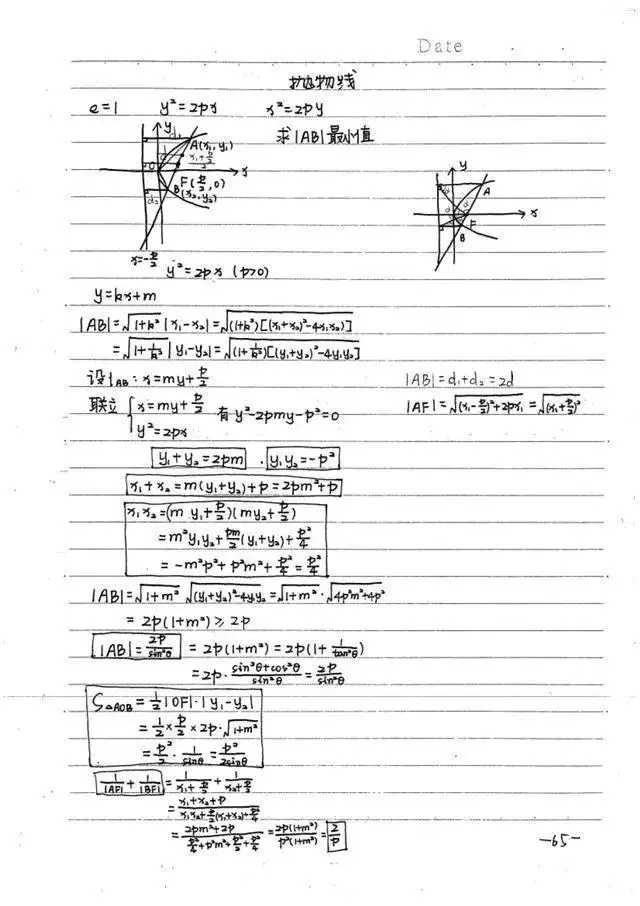 Date
抛物线
e=1 y²=2px x²=2py
求|AB|最小值
y
d₁
A(x₁,y₁)
d
x₁+p/2
O
x
F(p/2,0)
d₂
B(x₂,y₂)
x=-p/2
y²=2px (p>0)
y
A
d
d
x
F
B
y=kx+m
|AB|=√(1+k²)|x₁-x₂|=√((1+k²)[(x₁+x₂)²-4x₁x₂)]
=√(1+1/k²)|y₁-y₂|=√((1+1/k²)[(y₁+y₂)²-4y₁y₂]
设l_AB: x=my+p/2
|AB|=d₁+d₂=2d
联立 { x=my+p/2 有y²-2pmy-p²=0
y²=2px
|AF|=√((x₁-p/2)²+2px₁)=√((x₁+p/2)²)
y₁+y₂=2pm . y₁y₂=-p²
x₁+x₂=m(y₁+y₂)+p=2pm²+p
x₁x₂=(my₁+p/2)(my₂+p/2)
=m²y₁y₂+pm/2(y₁+y₂)+p²/4
=-m²p²+p²m²+p²/4=p²/4
|AB|=√(1+m²) √((y₁+y₂)²-4y₁y₂)=√(1+m²)·√(4p²m²+4p²)
=2p(1+m²)≥2p
|AB|=2p/sin²θ =2p(1+m²)=2p(1+1/tan²θ)
=2p·(sin²θ+cos²θ)/sin²θ=2p/sin²θ
S△AOB=1/2|OF|·|y₁-y₂|
=1/2×p/2×2p·√(1+m²)
=p²/2·1/sinθ=p²/2sinθ
1/|AF|+1/|BF|=1/(x₁+p/2)+1/(x₂+p/2)
=(x₁+x₂+p)/(x₁x₂+p/2(x₁+x₂)+p²/4)
=(2pm²+2p)/(p²/4+p²m²+p²/2+p²/4)=2p(1+m²)/p²(1+m²)=2/p
-65-